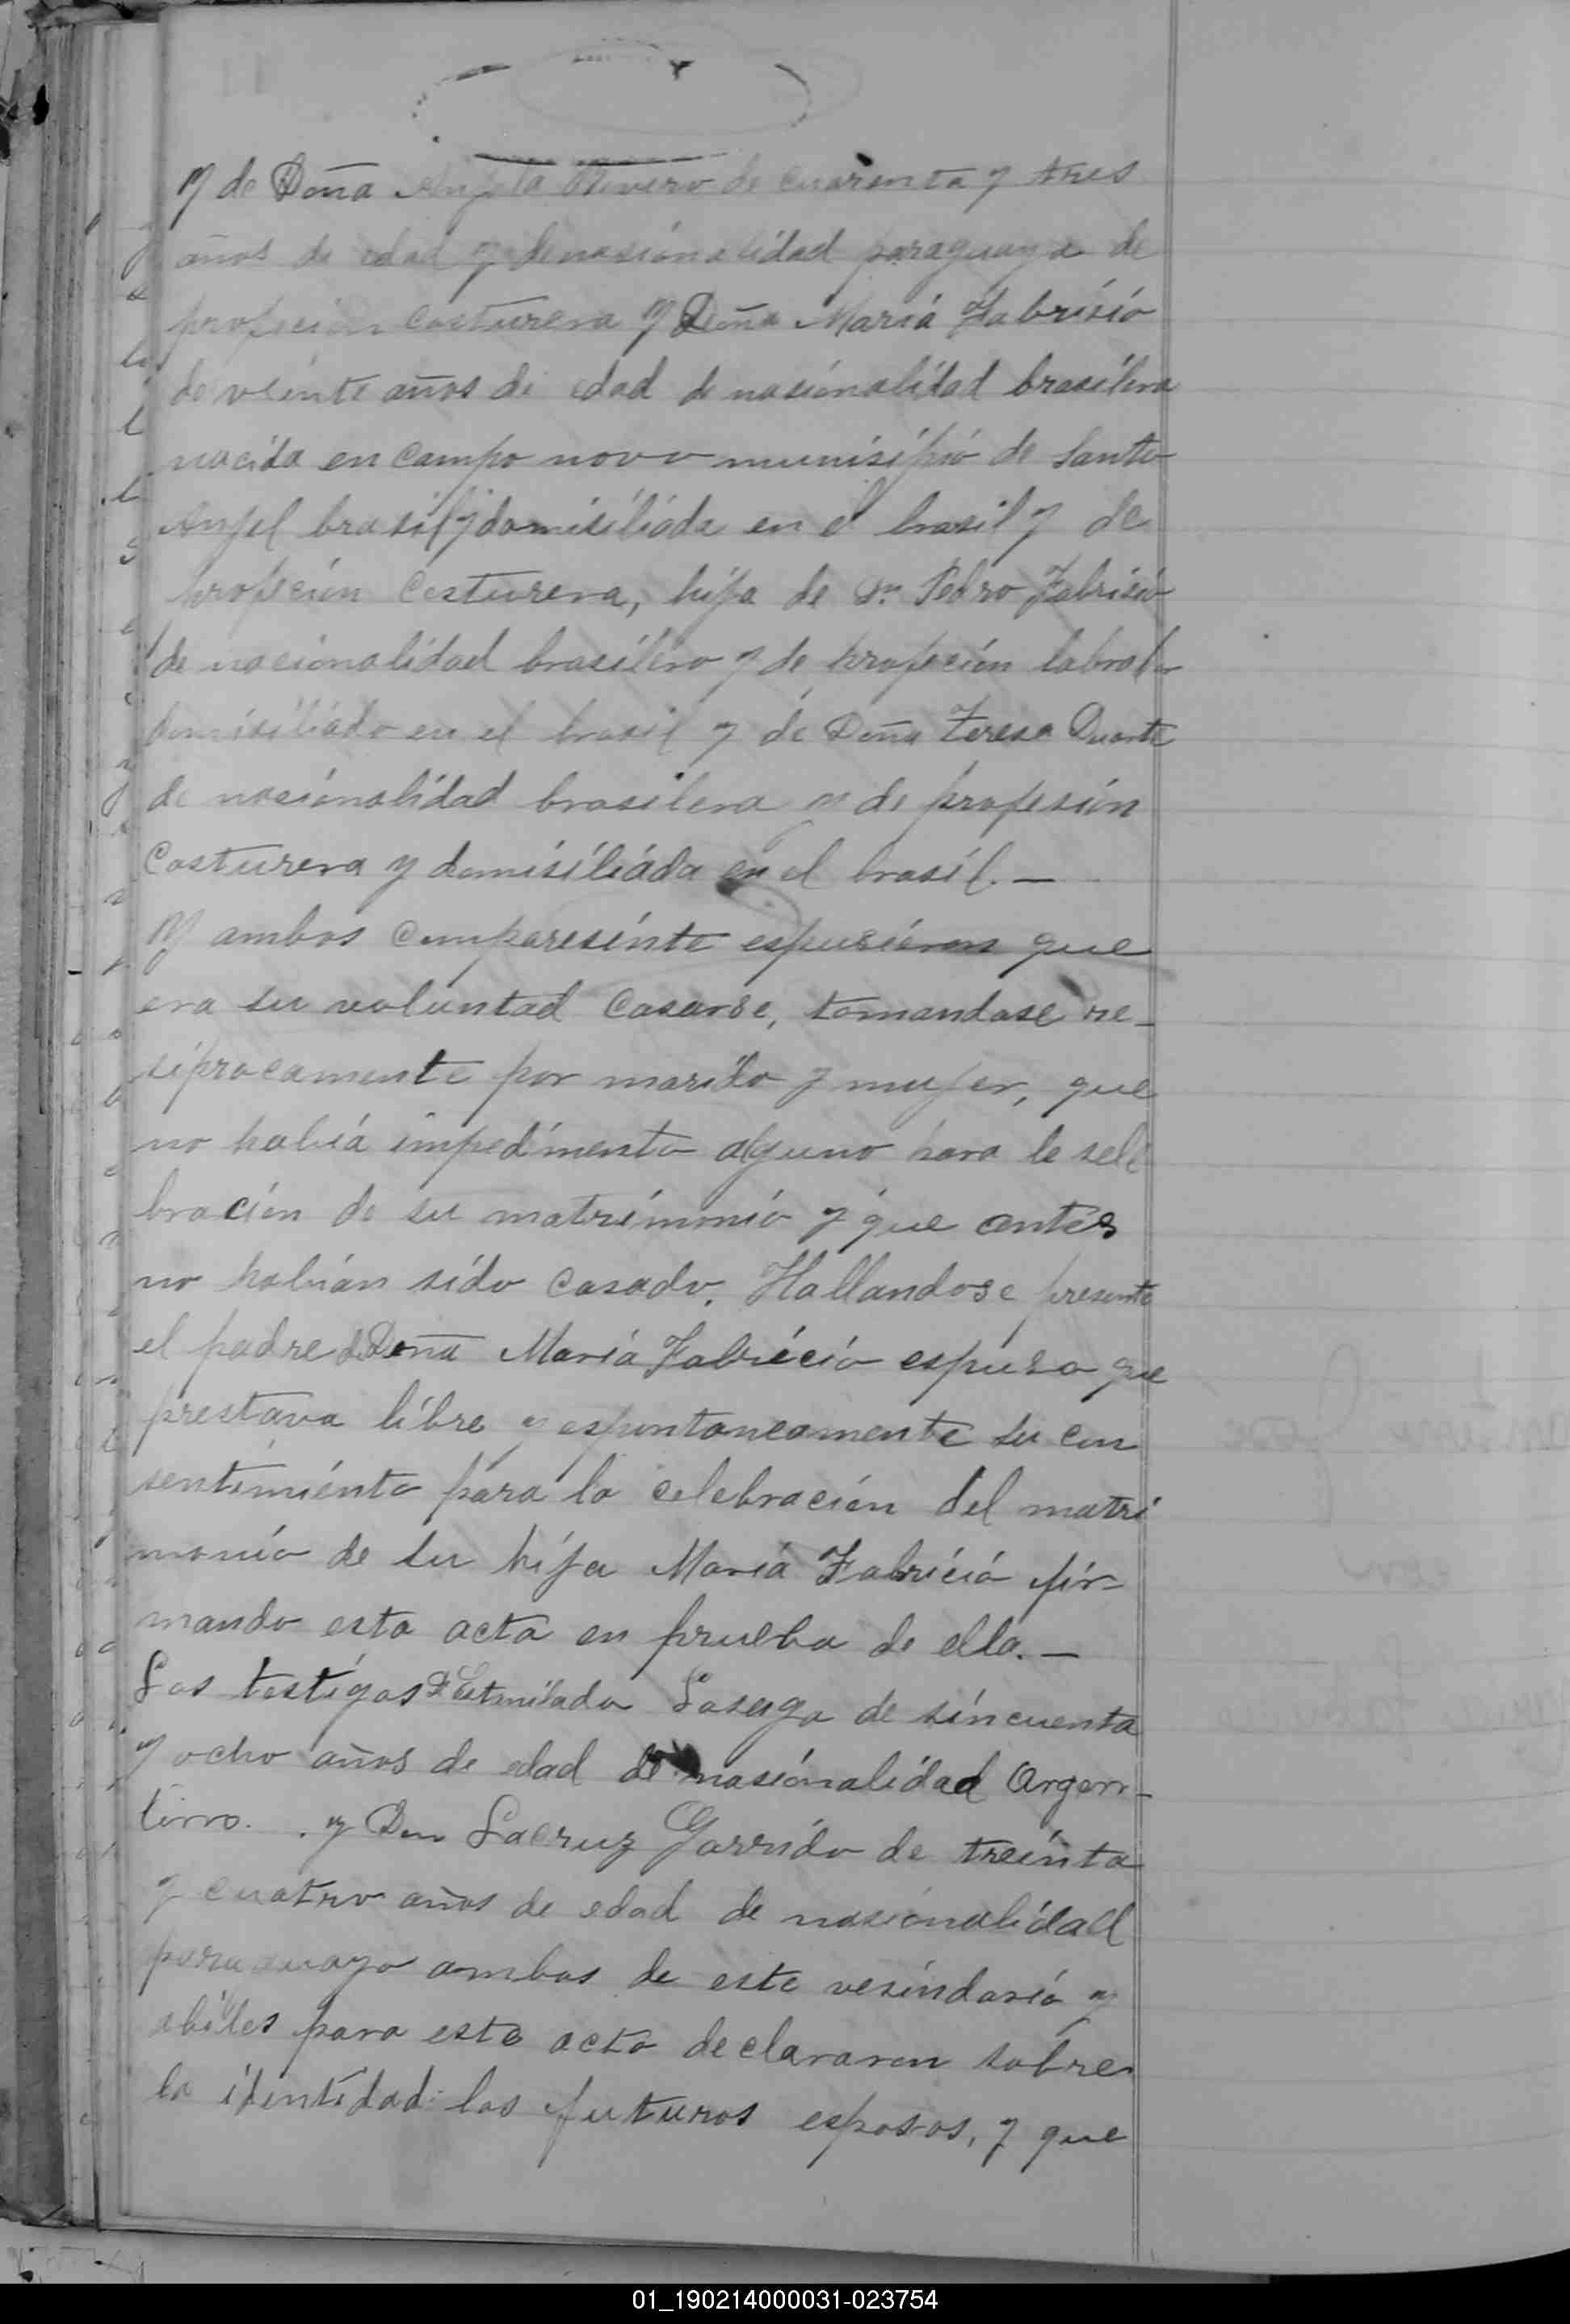 y de Doña Anjela Rivero de cuarenta y tres
años de edad y de nasionalidad paraguaya de
profecion costurera y Doña María Fabrisio
de veinte años de edad de nasionalidad brasilera
nacida en campo novo munisipio de Santo
Anjel brasil y domisiliada en el brasil y de
profecion Costurera, hija de Dn Pedro Fabrisio
de nacionalidad brasilero y de profeción labrador
domisiliado en el brasil y de Doña Teresa Duarte
de nasionalidad brasilera y de profesión
Costurera y domisiliada en el brasil. —
Y ambos comparesinte espusieron que
era su voluntad Casarse, tomandose re-
siprocamente por marido y mujer, que
no había impedimento alguno para la sele
bración de su matrimonio y que antes
no habian sido Casado. Hallandose presente
el padre de Doña María Fabricio espuso que
prestava libre y espontaneamente su con
sentimiento para la celebración del matri
monio de su hija María Fabricio fir-
mando esta acta en prueba de ella. —
Los testigos Dn Estanilado Losaga de sincuenta
y ocho años de edad de nasionalidad Argen-
tino. y Don Lacruz Garrido de treinta
y cuatro años de edad de nasionalidad
paraguayo ambos de este vesindario y
abiles para este acto declararon sobre
la identidad los futuros esposos, y que
01_190214000031-023754